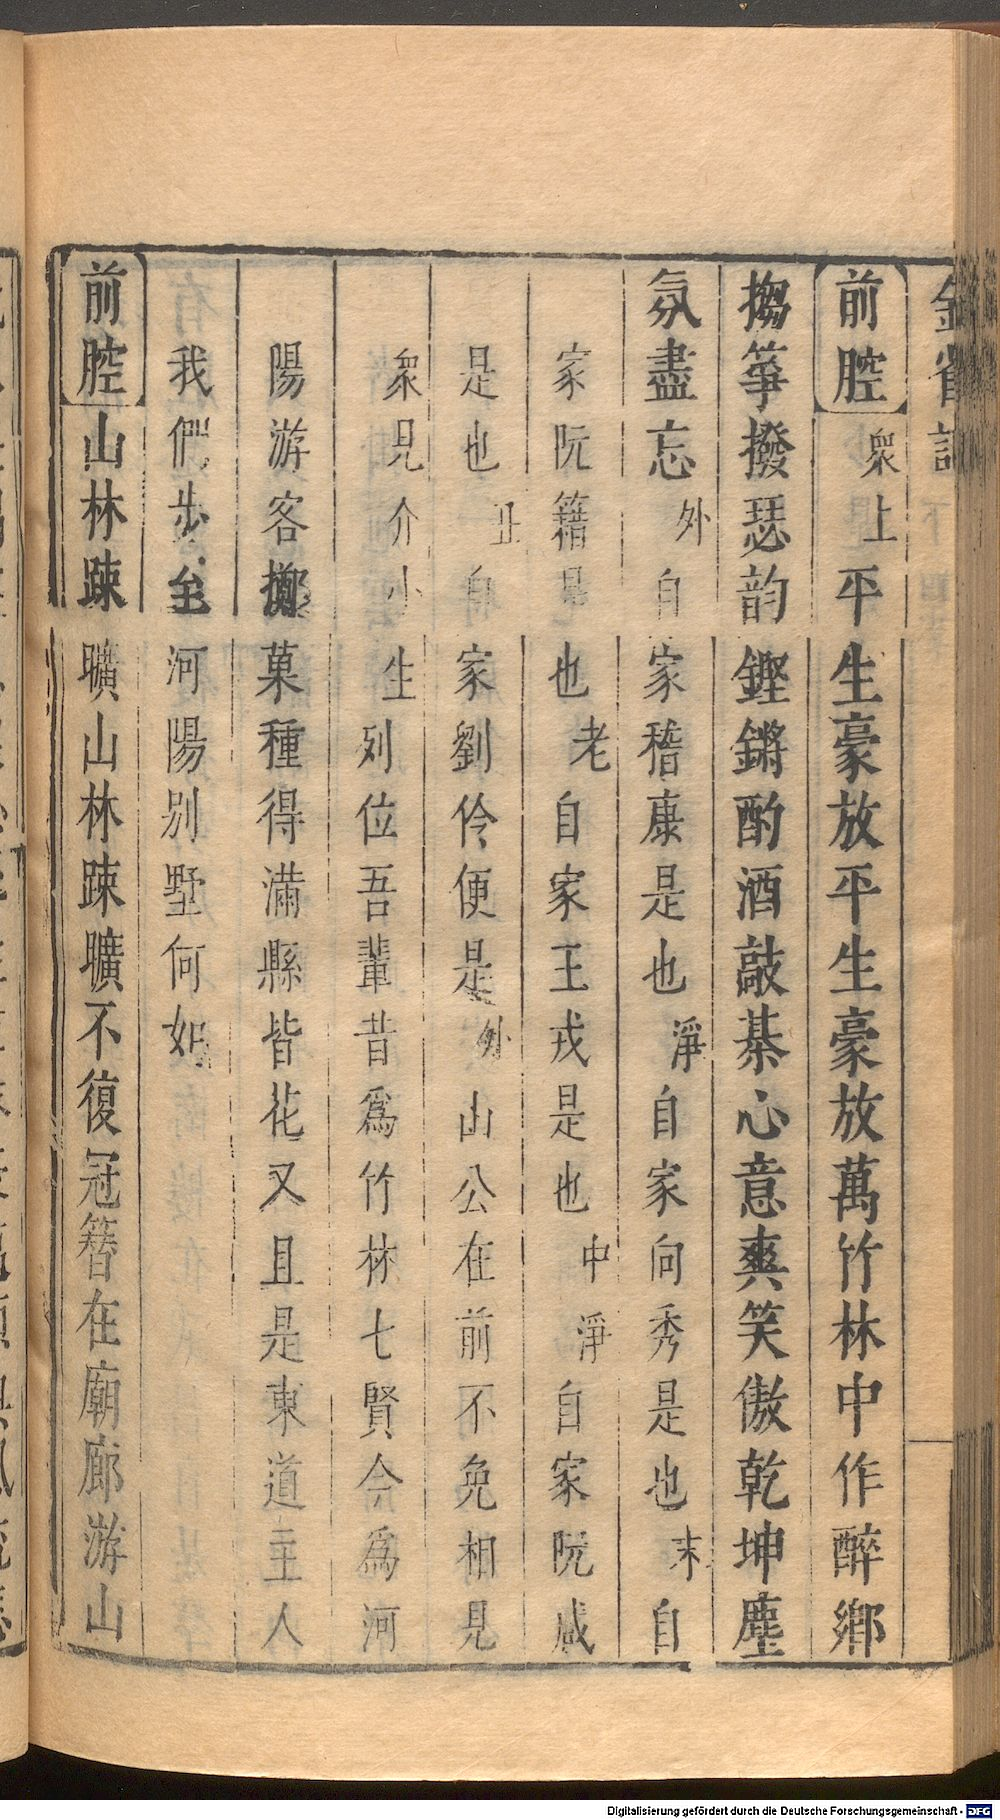 前腔衆上平生豪放平生豪放萬竹林中作醉鄉
搊箏撥瑟韵鏗鏘酌酒敲棊心意爽笑傲乾坤塵
氛盡忘外自家稽康是也淨自家向秀是也末自
家阮籍是也老自家王戎是也中淨自家阮咸
是也丑自家劉伶便是外山公在前不免相見
衆見介小生列位吾輩昔爲竹林七賢今爲河
陽游客擲菓種得滿縣皆花又且是東道主人
我們步至河陽別墅何如
前腔山林踈曠山林踈曠不復冠簪在廟廊游山
Digitalisierung gefördert durch die Deutsche Forschungsgemeinschaft - DFG